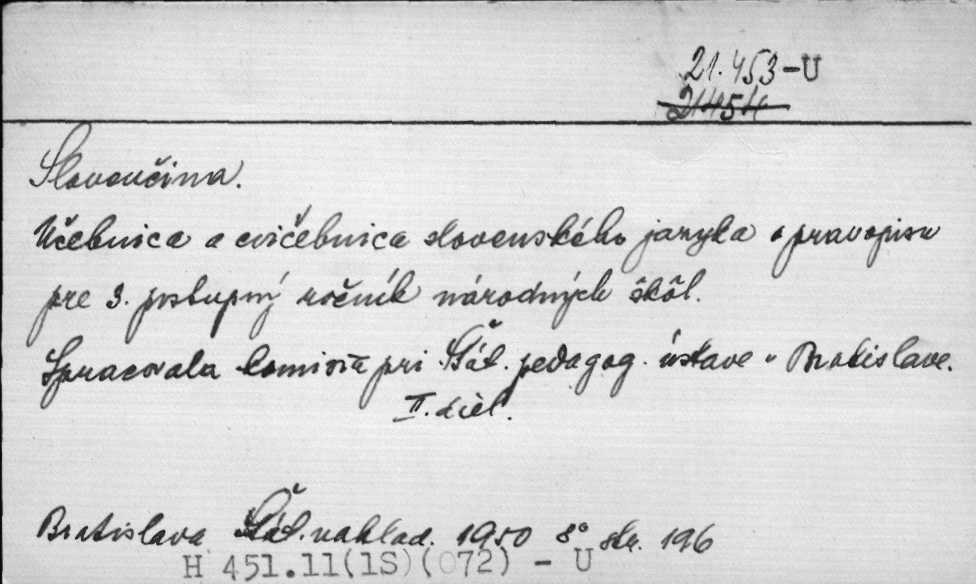 21.453-U
21454
Slovenčina.
Učebnica a cvičebnica slovenského jazyka a pravopisu
pre 3. postupný ročník národných škôl.
Spracovala komisia pri Štát. pedagog. ústave v Bratislave.
II. diel.
Bratislava Štát. naklad. 1950 8° str. 196
H 451.11(1S)(072) - U